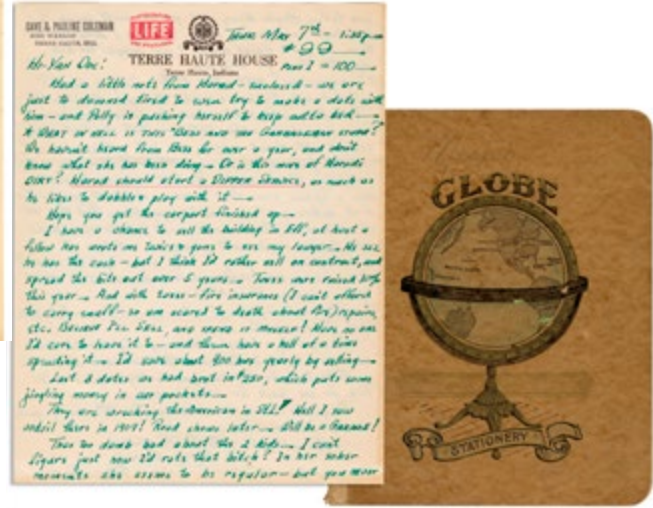 DAVE & PAULINE COLEMAN
LIFE
TERRE HAUTE HOUSE
Terre Haute, Indiana
Tues May 7th — 1:30 p—
#99—
Page 1 = 100—
Had a little note from Harad — enclosed — we are
just to damned tired to even try to make a date with
him — and Polly is pushing herself to keep outta bed—
WHAT IN HELL IS THIS "BESS AND THE CANNELLONI STORY?
We haven't heard from Bess for over a year, and don't
know what she has been doing — Or is this more of Harads
DIRT? Harad should start a DIAPER SERVICE, as much as
he likes to dabble & play with it —
Hope you got the carport finished up —
I have a chance to sell the building in, at least a
fellow has wrote me twice & gone to see my lawyer — He says
he has the cash — but I think I'd rather sell on contract, and
spread the bite out over 5 years — Taxes were raised 10%
this year — And with — fire insurance (I can't afford
to carry small — so am scared to death about fire) repairs,
etc. and is nicer! Have no one
I'd care to leave it to — and them have a hell of a time
spending it — I'd save about 900 yearly by selling —
Last 3 dates we had best in, which puts some
jingling money in our pockets —
They are wrecking the American in STL! Hell I saw
there in 1909! Road shows later — Will be a Garage!
Tis too damb bad about the 2 kids — I can't
figure just how I'd rate that bitch? In her sober
moments she seems to be regular — but you never
GLOBE
STATIONERY